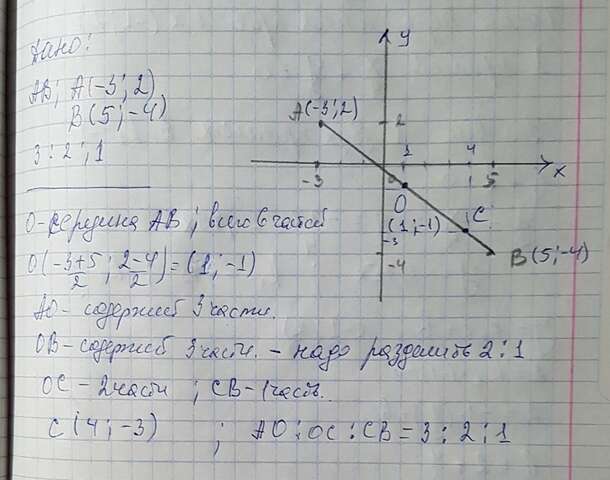 Дано:
AB; A(-3; 2)
B(5; -4)
3:2:1
O-середина AB; всего 6 частей
O(-3+5/2; 2-4/2)=(1; -1)
AO- содержит 3 части.
OB-содержит 3 части. - надо разделить 2:1
OC-2 части; CB-1 часть.
C(4; -3) ; AO:OC:CB=3:2:1
y
A(-3; 2)
2
1
4
x
-3
0
5
O
(1; -1)
C
-3
-4
B(5; -4)